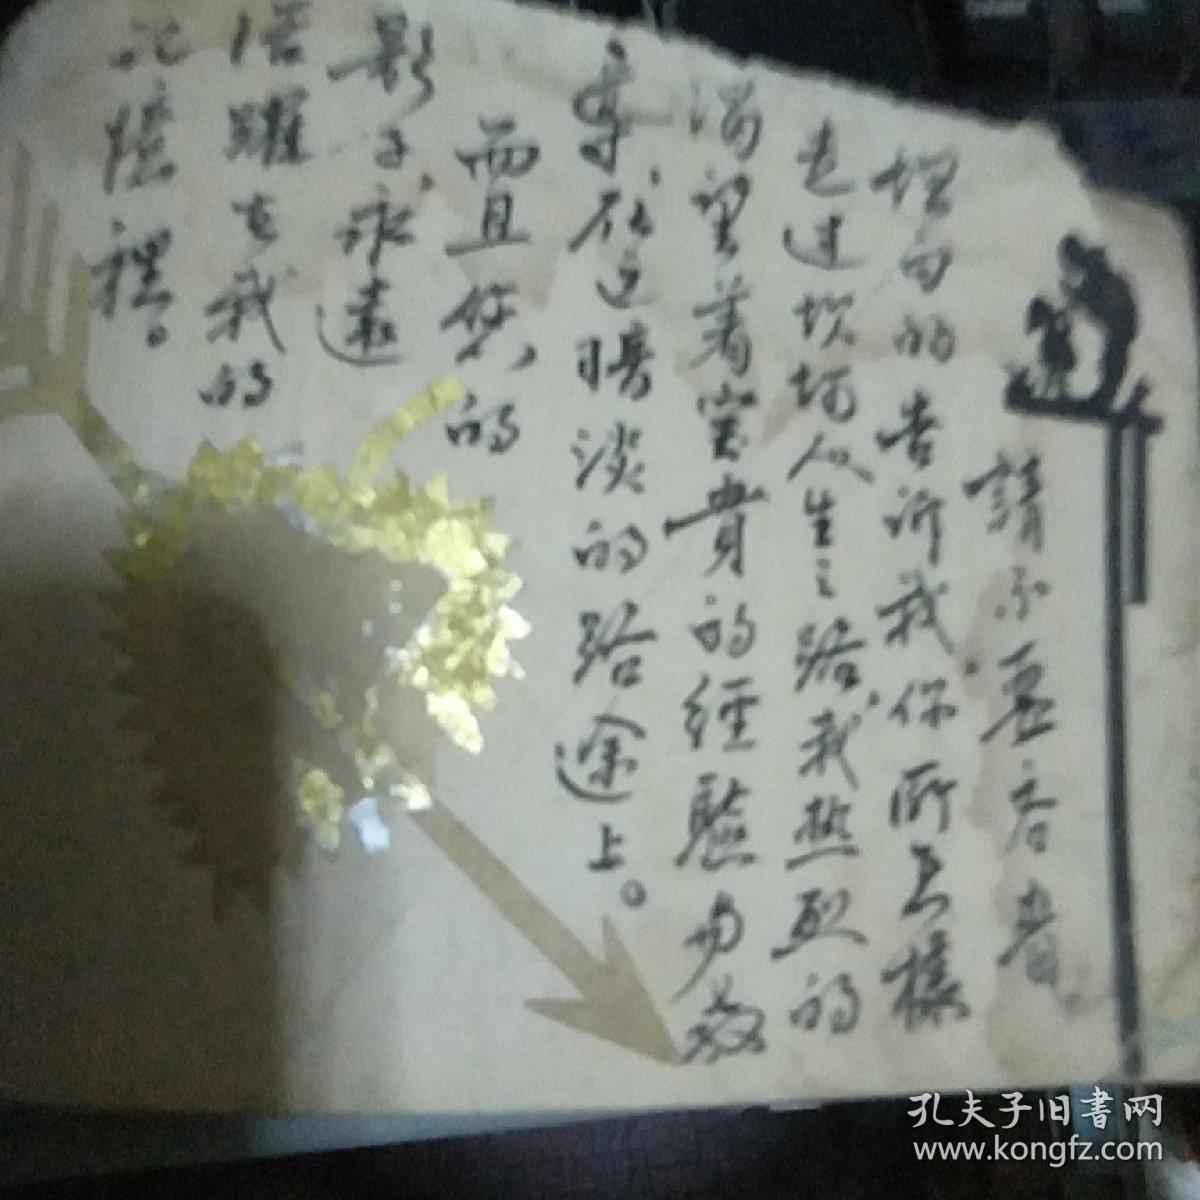 請不要吝嗇
坦白的告訴我，你所怎樣
走過坎坷人生之路，我熱烈的
渴望着寶貴的經驗与教
導，在这暗淡的路途上。
而且您的
影子，永遠
活躍在我的
記憶裡。
孔夫子旧書网
www.kongfz.com